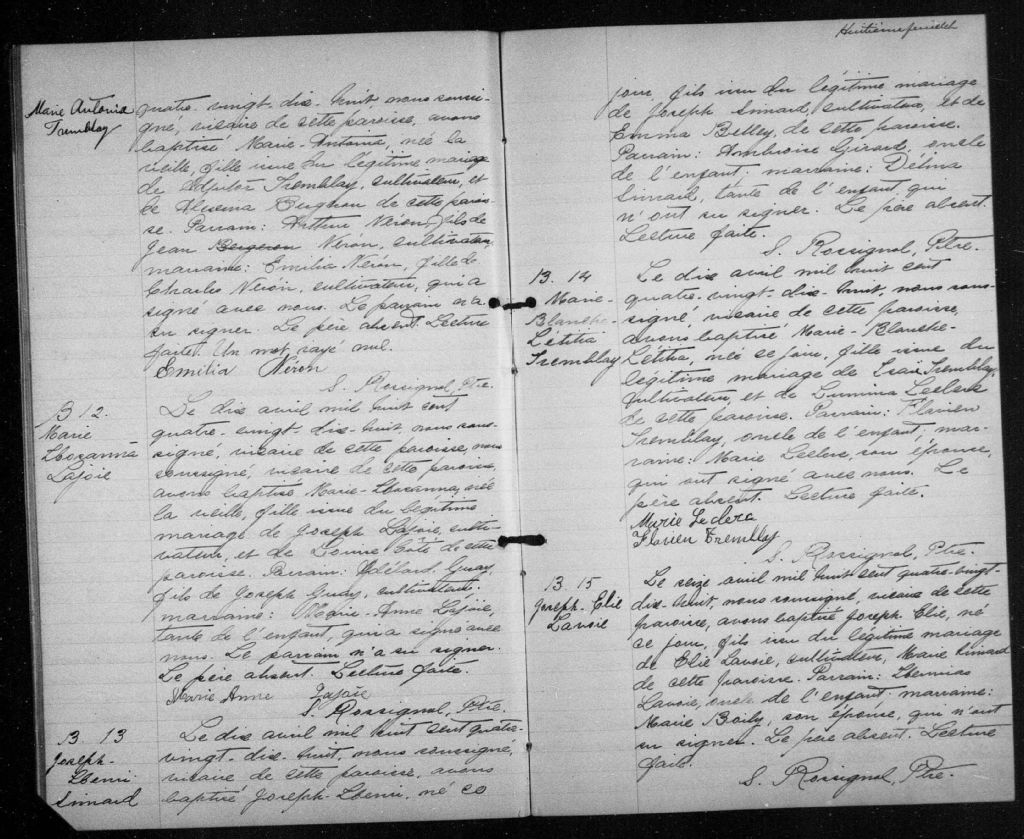 Marie Antonia
Tremblay
quatre-vingt-dix-huit nous soussi-
gné, vicaire de cette paroisse, avons
baptisé Marie-Antonia, née la
veille, fille issue du légitime mariage
de Adjutor Tremblay, cultivateur, et
de Alexina Bergeron de cette parois-
se. Parrain: Arthur Néron, fils de
Jean Bergeron Néron, cultivateur,
marraine: Emilia Néron, fille de
Charles Néron, cultivateur, qui a
signé avec nous. Le parrain n'a
su signer. Le père absent. Lecture
faite. Un mot rayé nul.
Emilia Néron
S. Rossignol, Ptre.
B 12.
Marie
Lajoie
Le dix avril mil huit cent
quatre-vingt-dix-huit, nous sous-
signé, vicaire de cette paroisse, nous
soussigné, vicaire de cette paroisse,
avons baptisé Marie- née
la veille, fille issue du légitime
mariage de Joseph Lajoie, culti-
vateur, et de Côté de cette
paroisse. Parrain: Adélard Guay,
fils de Joseph Guay, cultivateur,
marraine: Marie-Anne Lajoie,
tante de l'enfant, qui a signé avec
nous. Le parrain n'a su signer.
Le père absent. Lecture faite.
Marie Anne Lajoie
S. Rossignol, Ptre.
B 13
Joseph-
Simard
Le dix avril mil huit cent quatre-
vingt-dix-huit, nous soussigné,
vicaire de cette paroisse, avons
baptisé Joseph- né ce
Huitième feuillet
jour, fils issu du légitime mariage
de Joseph Simard, cultivateur, et de
Emma Belley, de cette paroisse.
Parrain: Ambroise Girard, oncle
de l'enfant; marraine: Délima
Simard, tante de l'enfant, qui
n'ont su signer. Le père absent.
Lecture faite.
S. Rossignol, Ptre.
B. 14
Marie-
Blanche-
Létitia
Tremblay
Le dix avril mil huit cent
quatre-vingt-dix-huit, nous sous-
signé, vicaire de cette paroisse,
avons baptisé Marie-Blanche-
Létitia, née ce jour, fille issue du
légitime mariage de Tremblay,
cultivateur, et de Leclerc
de cette paroisse. Parrain: Flavien
Tremblay, oncle de l'enfant; mar-
raine: Marie Leclerc, son épouse,
qui ont signé avec nous. Le
père absent. Lecture faite.
Marie Leclerc
Flavien Tremblay
S. Rossignol, Ptre.
B 15
Joseph-Elie
Lavoie
Le seize avril mil huit cent quatre-vingt-
dix-huit, nous soussigné, vicaire de cette
paroisse, avons baptisé Joseph Elie, né
ce jour, fils issu du légitime mariage
de Elie Lavoie, cultivateur, Marie Simard
de cette paroisse. Parrain:
Lavoie, oncle de l'enfant: marraine:
Marie Boily, son épouse, qui n'ont
su signer. Le père absent. Lecture
faite.
S. Rossignol, Ptre.